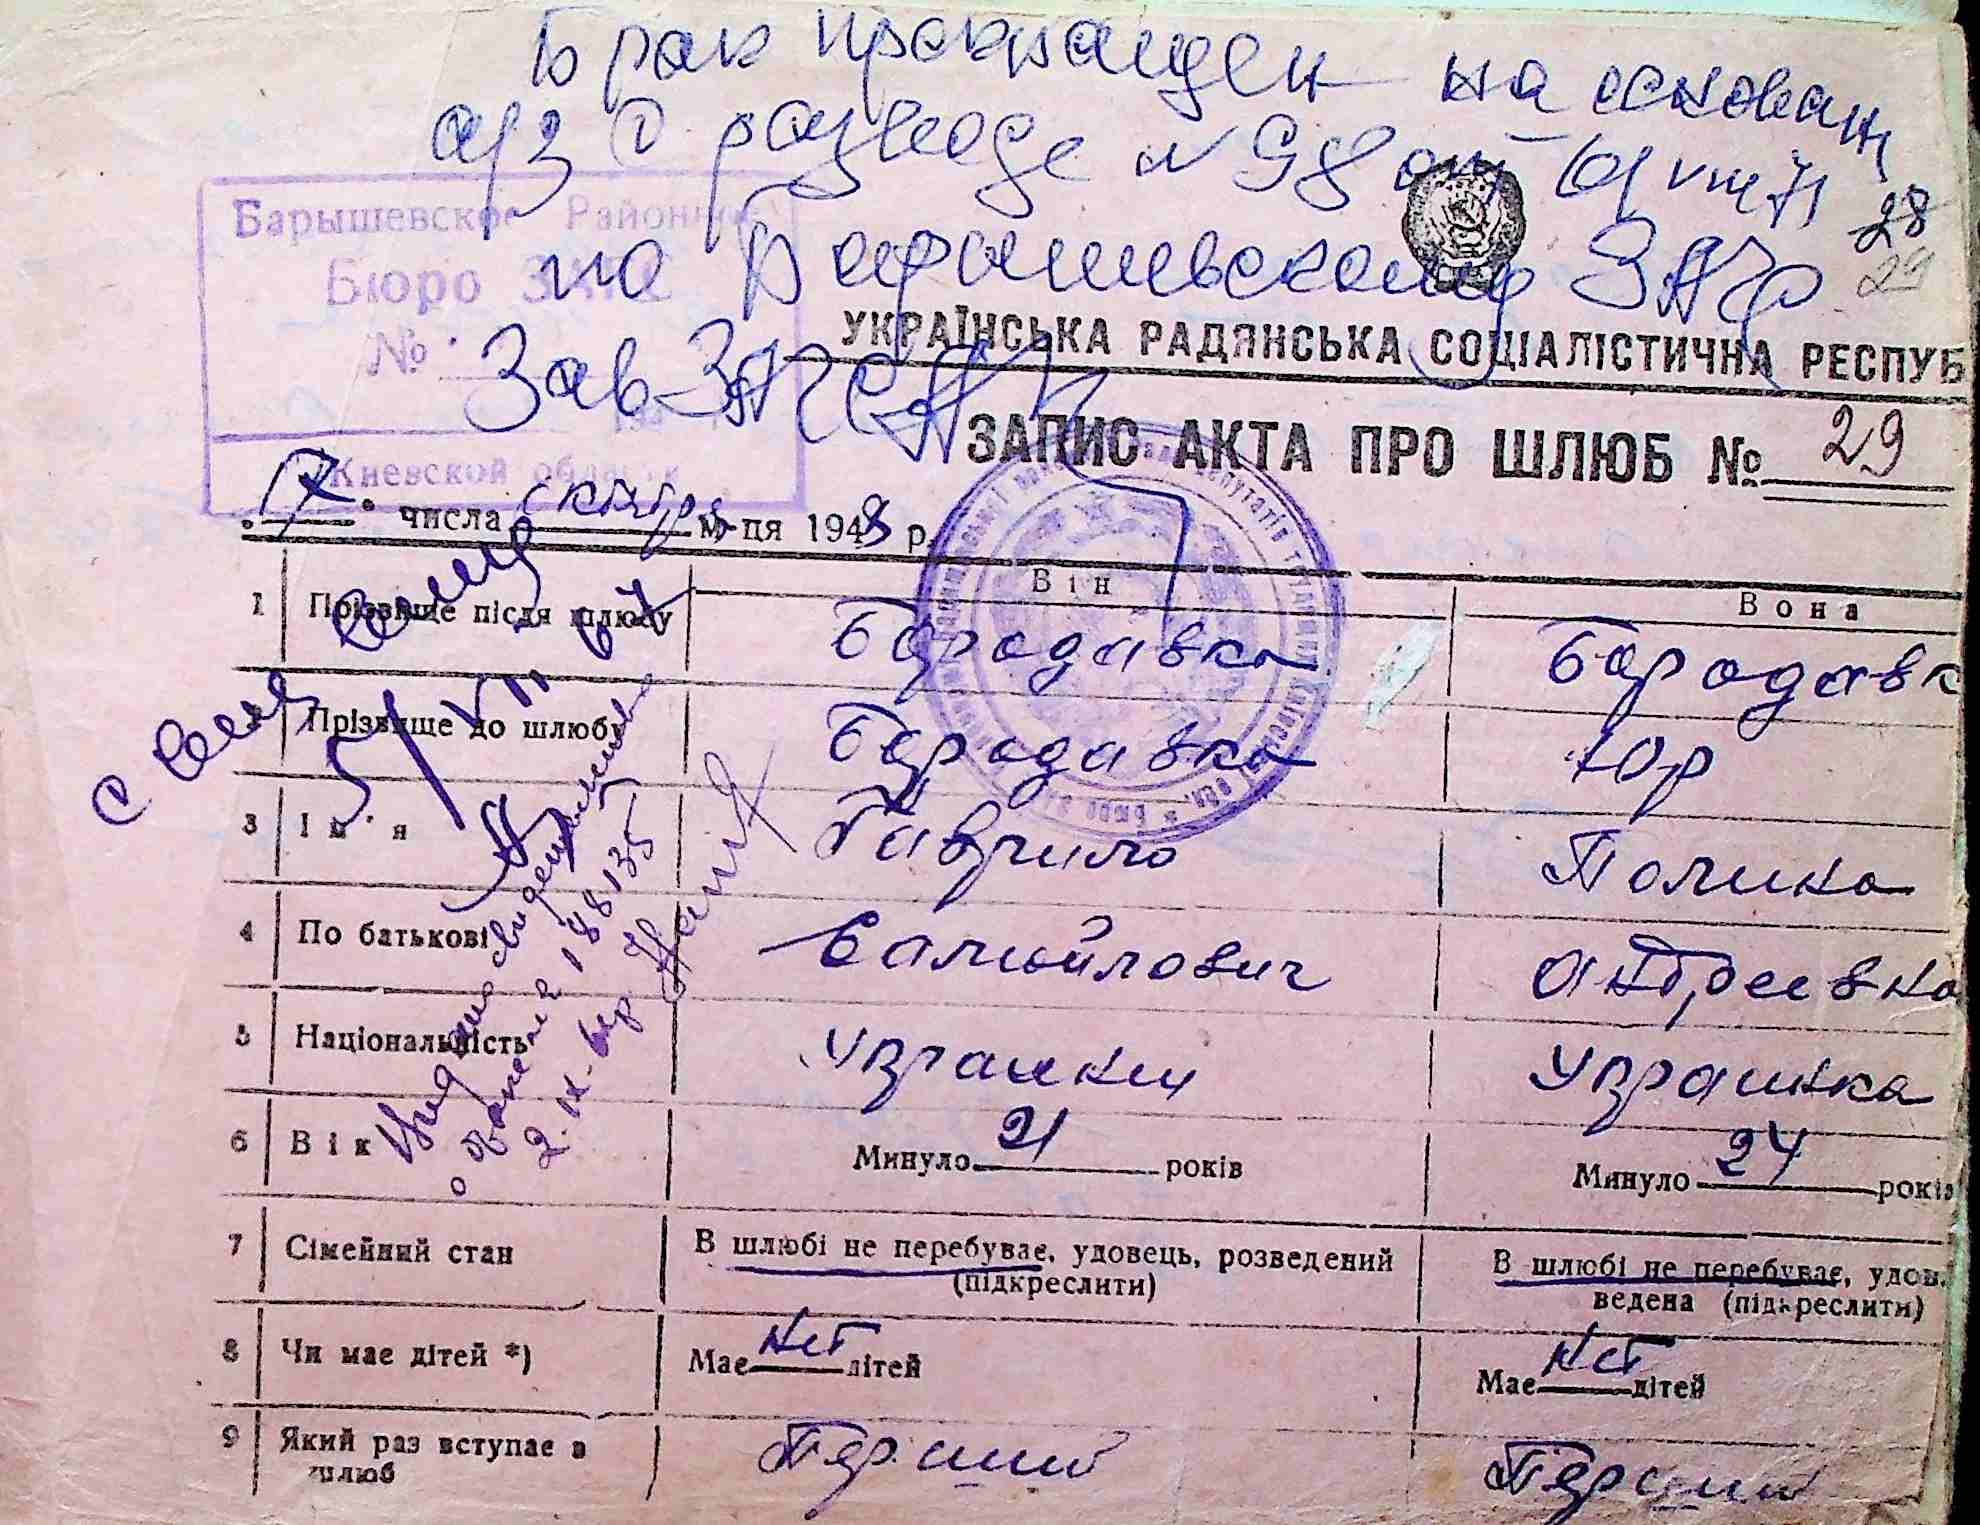 Брак прекращен на основан
арз о разводе №98 от
28
29
по Барышевскому ЗАГС
Зав ЗАГСА
Барышевское Районное
Бюро ЗАГС
№
Киевской области
УКРАЇНСЬКА РАДЯНСЬКА СОЦІАЛІСТИЧНА РЕСПУБ
ЗАПИС АКТА ПРО ШЛЮБ № 29
17 числа октября м-ця 1948 р.
Він Вона
1 Прізвище після шлюбу Бородавка Бородавк
2 Прізвище до шлюбу Бородавка Юр
3 Ім'я Гаврило Полина
4 По батькові Самойлович Андреевна
5 Національність Украинец Украинка
6 Вік Минуло 21 років Минуло 24 років
7 Сімейний стан В шлюбі не перебуває, удовець, розведений (підкреслити) В шлюбі не перебуває, удов. ведена (підкреслити)
8 Чи має дітей *) Має нет дітей Має нет дітей
9 Який раз вступає в шлюб Перший Перший
с
5/VII 67
Выдано свидетельство
о браке № 188135